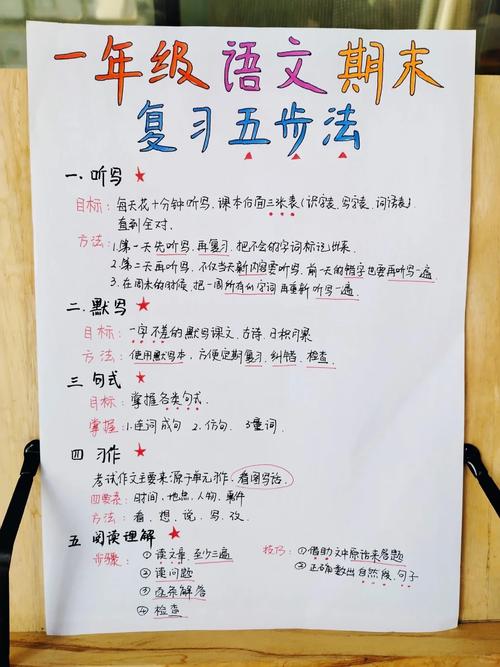 一年级 语文 期末
复习五步法
一.听写
目标:每天花十分钟听写.课本后面三张表(识字表.写字表.词语表).
直到全对.
方法:1.第一天先听写,再复习.把不会的字词标记出来.
2.第二天再听写.不仅当天新内容要听写.前一天的错字也要再听写一遍.
3.在周末的时候,把一周所有的字词再重新听写一遍.
二.默写
目标:一字不差的默写课文.古诗.日积月累
方法:使用默写本,方便定期复习.纠错.检查.
三 句式
目标:掌握各类句式.
掌握:1.连词成句 2.仿句. 3量词.
四 习作
考试作文主要来源于单元习作,看图写话.
四要素:时间,地点,人物.事件
方法:看.想.说.写.改.
五 阅读理解
步骤:①读文章.至少三遍
②读问题
③逐条解答
④检查
技巧:①借助文中原话来答题
②正确数出自然段.句子